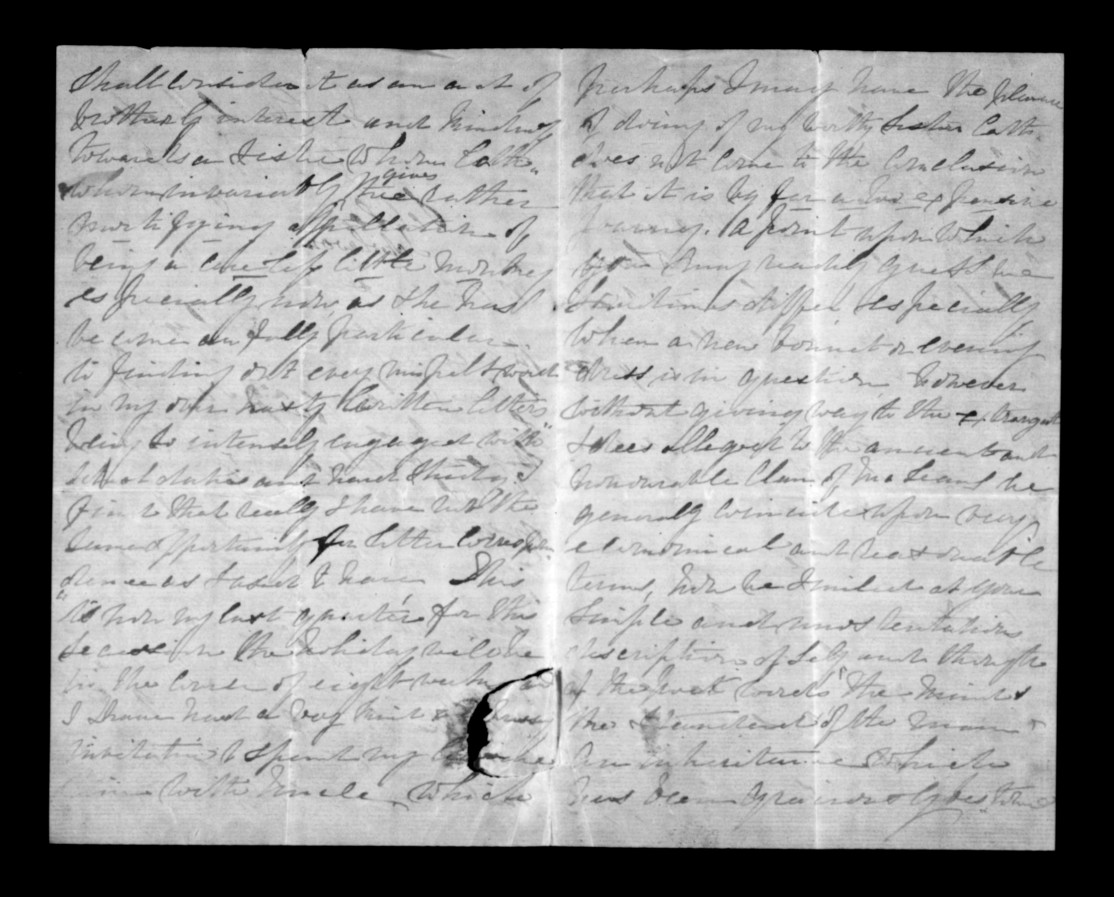 shall consider it as an act of
brotherly interest and kindness
towards a Sister whom Cath.
whom invariably gives the rather
mortifying appellation of
being a careless little monkey
especially now, as she has
become awfully particular
to finding out every mispelt word
in my own hasty written letters
being so intensely engaged with
school duties and hard study, I
find that really I have not the
same opportunity for letter correspon
dence as I used to have This
is now my last quarter for this
secession the holidays will be
in the course of eight weeks
I have had a very kind &
invitation to spend my
time with Uncle which
perhaps I may have the pleasure
of doing if my worthy Sister Cath.
does not come to the conclusion
that it is by far a too expensive
journey. A point upon which
you may readily guess we
sometimes differ especially
when a new bonnet or evening
dress is in question however
without giving way to the extravagant
ideas alleged to the ancient and
honourable Clan of McLeans we
generally coincide upon very
economical and reasonable
terms, now be I smiled at your
simple and unostentatious
description of self and thought
of the poet words "The mind's
the standard of the man"
An inheritance which
has been